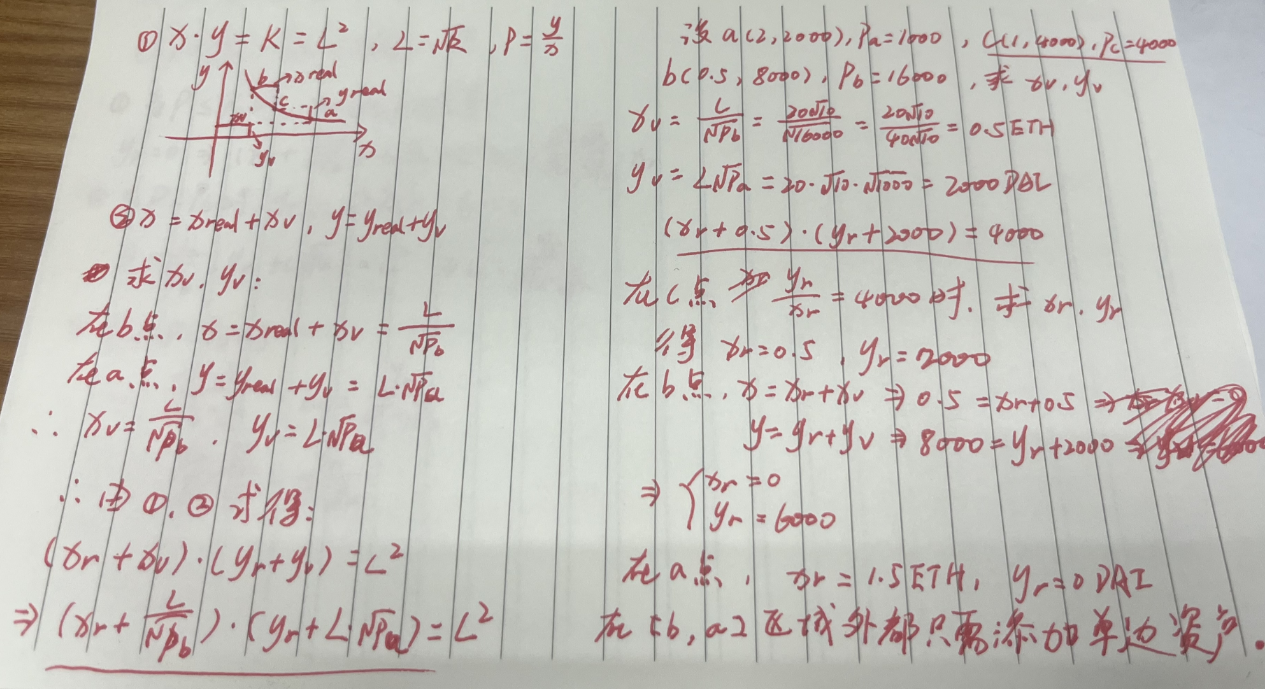 ① x·y=K=L², L=√k, P=y/x
y
b
x real
c
y real
a
xv
x
yv
②x=xreal+xv, y=yreal+yv
求xv, yv:
在b点, x=xreal+xv=L/√Pb
在a点, y=yreal+yv=L·√Pa
∴ xv=L/√Pb, yv=L·√Pa
∴ 由①,②求得:
(xr+xv)·(yr+yv)=L²
⇒ (xr+L/√Pb)·(yr+L·√Pa)=L²
设a(2,2000), Pa=1000, c(1,4000), Pc=4000
b(0.5,8000), Pb=16000, 求xv,yv
xv=L/√Pb=20√10/√16000=20√10/40√10=0.5ETH
yv=L√Pa=20·√10·√1000=2000DAI
(xr+0.5)·(yr+2000)=4000
在c点 yr/xr=4000时, 求xr,yr
得 xr=0.5, yr=2000
在b点, x=xr+xv ⇒ 0.5=xr+0.5 ⇒
y=yr+yv ⇒ 8000=yr+2000 ⇒
⇒ { xr=0
yr=6000
在a点, xr=1.5ETH, yr=0DAI
在[b,a]区域外都只需添加单边资产.